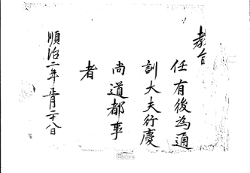 教旨
任有後為通
訓大夫行慶
尚道都事
者
順治二年正月二十八日